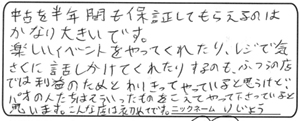 中古を半年間も保証してもらえるのは
かなり大きいです。
楽しいイベントをやってくれたり、レジで気
さくに話しかけてくれたりするのも、ふつうの店
では利益のためとわりきってやっていると思うけど、
の人たちはそういったものをこえてやって下さっていると
思います。こんな店は初めてです。ニックネーム りじょう